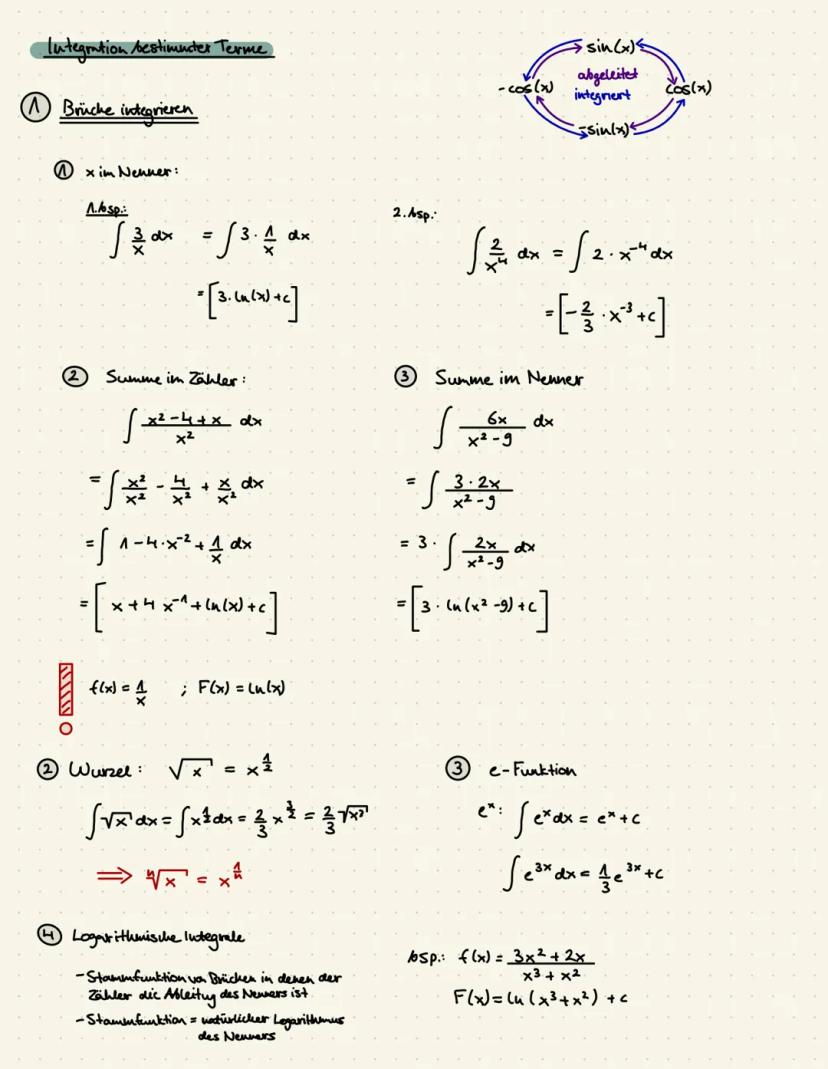 Integration bestimmter Terme
sin(x)
-cos(x) abgeleitet cos(x)
integriert
-sin(x)
① Brüche integrieren
① x im Nenner:
1. bsp.:
∫ 3/x dx = ∫ 3 · 1/x dx
= [3 · ln(x) + c]
2. bsp.:
∫ 2/x⁴ dx = ∫ 2 · x⁻⁴ dx
= [-2/3 · x⁻³ + c]
② Summe im Zähler:
∫ (x² - 4 + x)/x² dx
= ∫ x²/x² - 4/x² + x/x² dx
= ∫ 1 - 4 · x⁻² + 1/x dx
= [x + 4 x⁻¹ + ln(x) + c]
③ Summe im Nenner
∫ 6x/(x² - 9) dx
= ∫ (3 · 2x)/(x² - 9)
= 3 · ∫ 2x/(x² - 9) dx
= [3 · ln(x² - 9) + c]
f(x) = 1/x ; F(x) = ln(x)
② Wurzel: √x = x^(1/2)
∫ √x dx = ∫ x^(1/2) dx = 2/3 x^(3/2) = 2/3 √x³
⟹ ⁿ√x = x^(1/n)
③ e-Funktion
eˣ: ∫ eˣ dx = eˣ + c
∫ e³ˣ dx = 1/3 e³ˣ + c
④ Logarithmische Integrale
- Stammfunktion von Brüchen in denen der
Zähler die Ableitug des Nenners ist
- Stammfunktion = natürlicher Logarithmus
des Nenners
bsp.: f(x) = (3x² + 2x)/(x³ + x²)
F(x) = ln(x³ + x²) + c